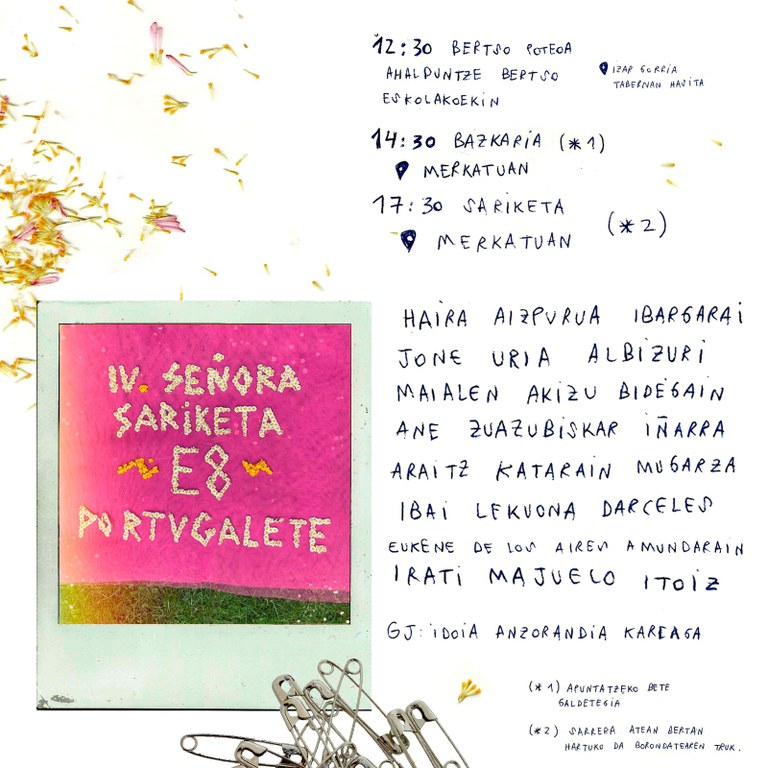 12:30 BERTSO POTEOA
AHALDUNTZE BERTSO
ESKOLAKOEKIN
IZAR GORRIA
TABERNAN HASITA
14:30 BAZKARIA (*1)
MERKATUAN
17:30 SARIKETA (*2)
MERKATUAN
IV. SEÑORA
SARIKETA
E8
PORTUGALETE
HAIRA AIZPURUA IBARGARAI
JONE URIA ALBIZURI
MAIALEN AKIZU BIDEGAIN
ANE ZUAZUBISKAR IÑARRA
ARAITZ KATARAIN MUGARZA
IBAI LEKUONA DARCELES
EUKENE DE LOS AIRES AMUNDARAIN
IRATI MAJUELO ITOIZ
GJ: IDOIA ANZORANDIA KAREAGA
(*1) APUNTATZEKO BETE
GALDETEGIA
(*2) SARRERA ATEAN BERTAN
HARTUKO DA BORONDATEAREN TRUK.